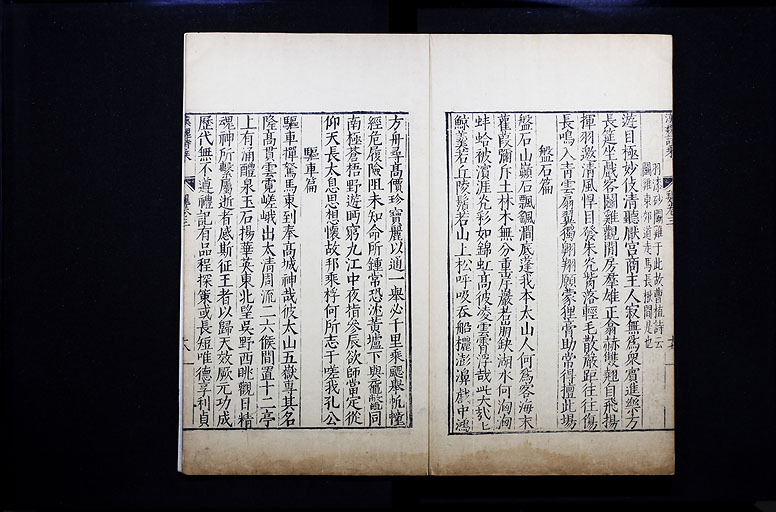 羽沫砂鬬雞于此故曹植詩云
鬬雞東郊道走馬長楸間是也
遊目極妙伎清聽厭宮商主人寂無為衆賓進樂方
長筵坐戲客鬬雞觀閒房羣雄正翕赫雙翹自飛揚
揮羽邀清風悍目發朱光觜落輕毛散嚴距往往傷
長鳴入青雲扇翼獨翱翔願蒙狸膏助常得擅此場
盤石篇
盤石山巔石飄颻澗底蓬我本太山人何為客海東
蒹葭彌斥土林木無分重岸巖若崩缺湖水何洶洶
蚌蛤被濱涯光彩如錦虹高彼凌雲霄浮氣
鯨脊若丘陵鬚若山上松呼吸吞船欐澎濞戲中鴻
方舟尋高價珍寶麗以通一舉必千里乘颸舉帆幢
經危履險阻未知命所鍾常恐沈黃壚下與黿鼈同
南極蒼梧野遊眄窮九江中夜指參辰欲師當定從
仰天長太息思想懷故邦乘桴何所志于嗟我孔公
驅車篇
驅車揮駑馬東到奉高城神哉彼太山五嶽專其名
隆高貫雲霓嵯峨出太清周流二六候間置十二亭
上有涌醴泉玉石揚華英東北望吳野西眺觀日精
魂神所繫屬逝者感斯征王者以歸天效厥元功成
歷代無不遵禮記有品程探策或長短唯德享利貞